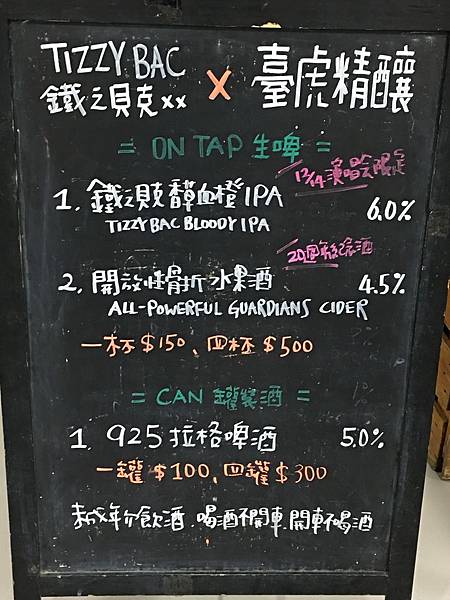 TIZZY BAC
鐵之貝克xx
X
臺虎精釀
= ON TAP 生啤 =
12/14演唱會限定
1. 鐵之貝克馥血橙IPA 6.0%
TIZZY BAC BLOODY IPA
20週年紀念酒
2. 開放性骨折水果酒 4.5%
ALL-POWERFUL GUARDIANS CIDER
一杯$150、四杯$500
= CAN 罐裝酒 =
1. 925拉格啤酒 5.0%
一罐$100、四罐$300
未成年勿飲酒.喝酒不開車,開車不喝酒